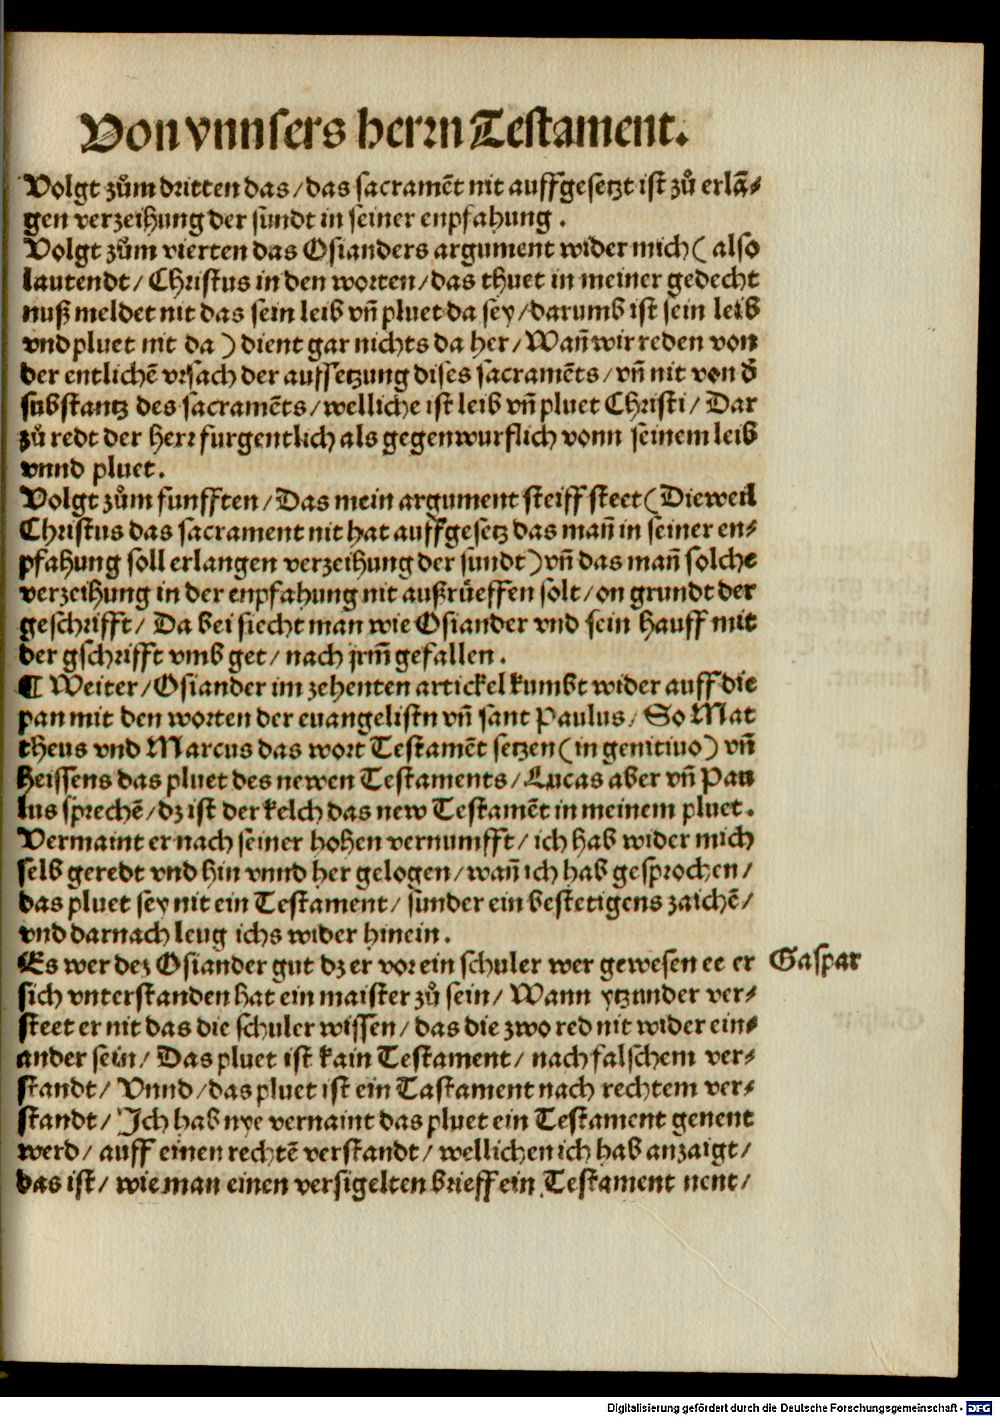 Von vnnsers herrn Testament.
Volgt zům dritten das/das sacramẽt nit auffgesetzt ist zů erlã-
gen verzeihung der sündt in seiner enpfahung.
Volgt zům vierten das Osianders argument wider mich (also
lautendt/Christus in den worten/das thuet in meiner gedecht
nuß meldet nit das sein leib vñ pluet da sey/darumb ist sein leib
vnd pluet nit da) dient gar nichts da her/Wañ wir reden von
der entlichẽ vrsach der auffsetzung dises sacramẽts/vñ nit von d̕
substantz des sacramẽts/welliche ist leib vñ pluet Christi/Dar
zů redt der herr furgentlich als gegenwurflich vonn seinem leib
vnnd pluet.
Volgt zům funfften/Das mein argument steiff steet (Dieweil
Christus das sacrament nit hat auffgesetz das mañ in seiner en-
pfahung soll erlangen verzeihung der sundt) vñ das mañ solche
verzeihung in der enpfahung nit außrůeffen solt/on grundt der
geschrifft/Da bei siecht man wie Osiander vnd sein hauff mit
der gschrifft vmb get/nach jrm̃ gefallen.
¶ Weiter/Osiander im zehenten artickel kumbt wider auff die
pan mit den worten der euangelistn vñ sant Paulus/So Mat
theus vnd Marcus das wort Testamẽt setzen (in genitiuo) vñ
heissens das pluet des newen Testaments/Lucas aber vñ Pau
lus sprechẽ/dz ist der kelch das new Testamẽt in meinem pluet.
Vermaint er nach seiner hohen vernumfft/ich hab wider mich
selb geredt vnd hin vnnd her gelogen/wañ ich hab gesprochen/
das pluet sey nit ein Testament/sunder ein bestetigens zaichẽ/
vnd darnach leug ichs wider hinein.
Es wer dez Osiander gut dz er vor ein schuler wer gewesen ee er
Gaspar
sich vnterstanden hat ein maister zů sein/Wann ytzunder ver-
steet er nit das die schuler wissen/das die zwo red nit wider ein-
ander sein/Das pluet ist kain Testament/nach falschem ver-
standt/Vnnd/das pluet ist ein Tastament nach rechtem ver-
standt/Ich hab nye vernaint das pluet ein Testament genent
werd/auff einen rechtẽ verstandt/wellichen ich hab anzaigt/
das ist/wie man einen versigelten brieff ein Testament nent/
Digitalisierung gefördert durch die Deutsche Forschungsgemeinschaft - DFG